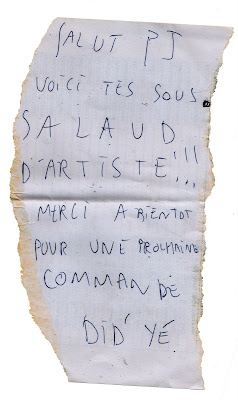 SALUT PJ
VOICI TES SOUS
SALAUD
D'ARTISTE!!!
MERCI A BIENTOT
POUR UNE PROCHAINE
COMMANDE
DID'YÉ